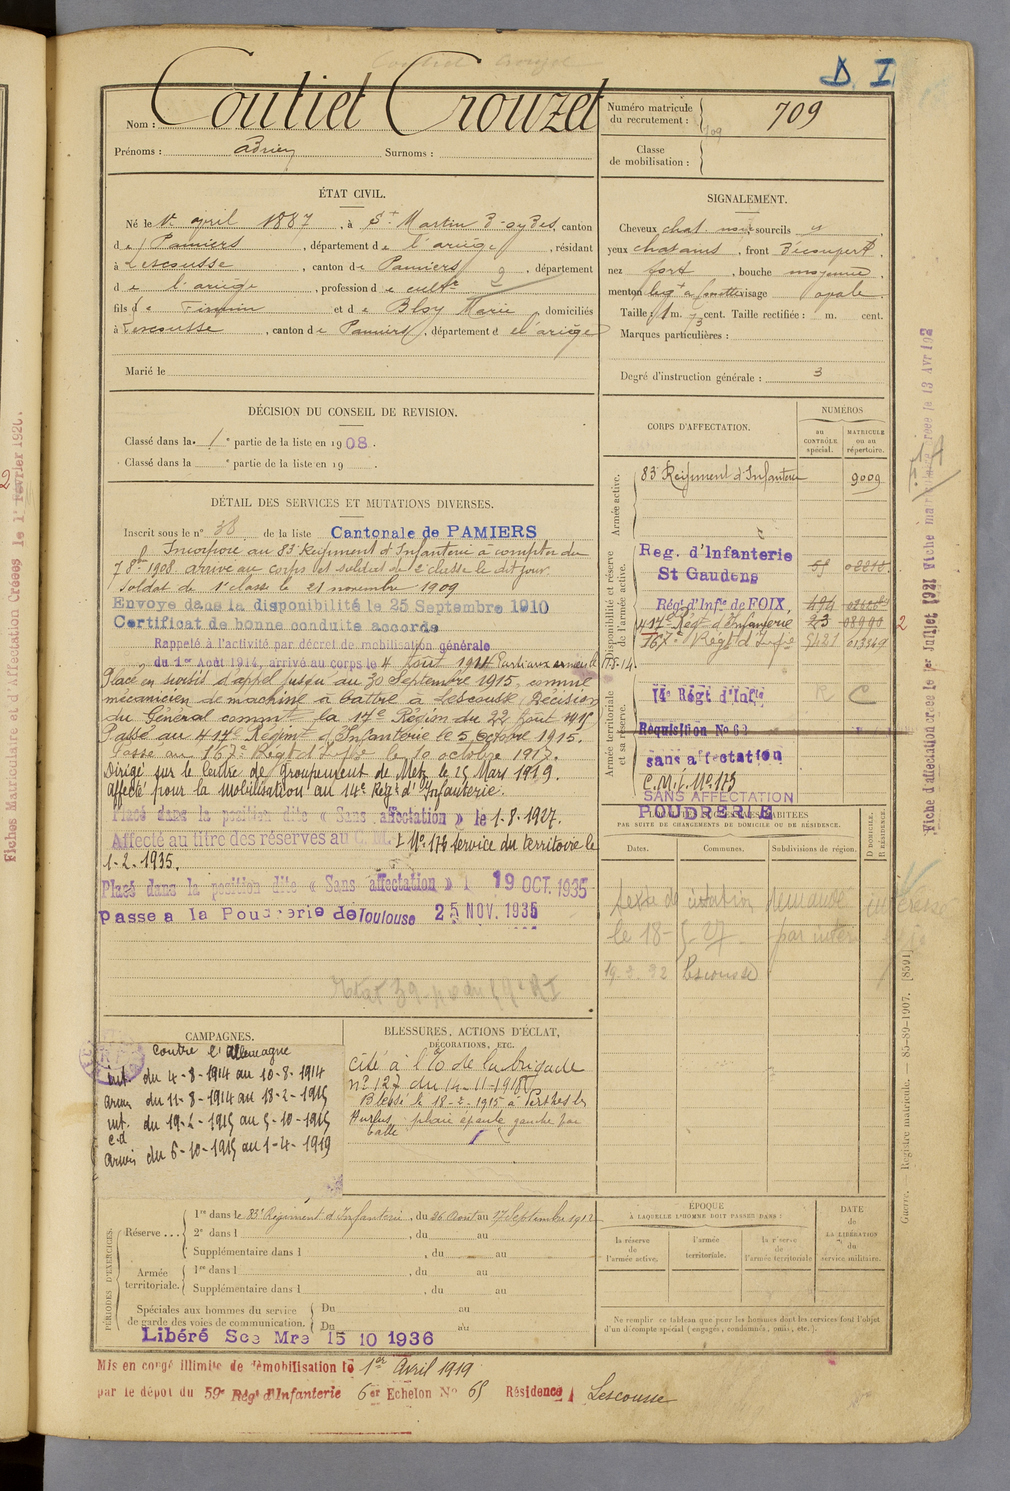 D. I
Nom : Coutiet Crouzet
Prénoms : Adrien Surnoms :
Numéro matricule du recrutement : 709
109
Classe de mobilisation :
ÉTAT CIVIL.
Né le 1er april 1887, à St Martin d'oydes, canton
de Pamiers, département de l'ariège, résidant
à Lescousse, canton de Pamiers, département
de l'ariège, profession de cultr
fils de Firmin et de Bloy Marie, domiciliés
à Lescousse, canton de Pamiers, département de l'ariège
Marié le
SIGNALEMENT.
Cheveux chat. noir sourcils
yeux chatains, front découvert,
nez fort, bouche moyenne,
menton visage ovale.
Taille : 1 m. 73 cent. Taille rectifiée : m. cent.
Marques particulières :
Degré d'instruction générale : 3
DÉCISION DU CONSEIL DE REVISION.
Classé dans la 1e partie de la liste en 1908.
Classé dans la e partie de la liste en 19 .
DÉTAIL DES SERVICES ET MUTATIONS DIVERSES.
Inscrit sous le n° 38 de la liste Cantonale de PAMIERS
Incorporé au 83e Régiment d'Infanterie à compter du
7 8bre 1908. arrivé au corps et soldat de 2e classe le dit jour.
Soldat de 1e classe le 21 novembre 1909
Envoyé dans la disponibilité le 25 Septembre 1910
Certificat de bonne conduite accordé
Rappelé à l'activité par décret de mobilisation générale
du 1er Août 1914, arrivé au corps le 4 Août 1914 Parti aux armées le
11-8-14
Placé en sursis d'appel jusqu'au 30 Septembre 1915, comme
mécanicien de machine à battre à Lescousse, Décision
du Général commt la 17e Région du 22 Août 1915
Passé au 417e Régimt d'Infanterie le 5 Octobre 1915.
Passé au 167e Régt d'Infie le 10 octobre 1917.
Dirigé sur le Centre de groupement de Metz le 25 Mars 1919.
Affecté pour la mobilisation au 14e Régt d'Infanterie.
Placé dans la position dite « Sans affectation » le 1-8-1927.
Affecté au titre des réserves au C.M.I No 173 Service du territoire le
1-2-1935.
Placé dans la position dite « Sans affectation » 19 OCT. 1935
Passé à la Poudrerie de Toulouse 25 NOV. 1935
CORPS D'AFFECTATION.
NUMÉROS
au CONTRÔLE spécial.
MATRICULE ou au répertoire.
Armée active.
83e Régiment d'Infanterie 9009
Disponibilité et réserve de l'armée active.
Reg. d'Infanterie
St Gaudens
Régt d'Infie de FOIX,
417e Régt d'Infanterie 23
167e Régt d'Infie 5421 013549
Armée territoriale et sa réserve.
14e Régt d'Infie R C
Requisition No 62
sans affectation
C.M.I. No 173
SANS AFFECTATION
POUDRERIE
PAR SUITE DE CHANGEMENTS DE DOMICILE OU DE RÉSIDENCE.
Dates. Communes. Subdivisions de région. D DOMICILE. R RÉSIDENCE.
Texte de citation demandé
le 18-5-27 par
19-2-32 Lescousse
CAMPAGNES.
contre l'Allemagne
int. du 4-8-1914 au 10-8-1914
armées du 11-8-1914 au 18-2-1915
int. du 19-2-1915 au 5-10-1915
c.d
armées du 6-10-1915 au 1-4-1919
BLESSURES, ACTIONS D'ÉCLAT,
DÉCORATIONS, ETC.
Cité à l'O de la brigade
n° 127 du 14-11-1918
Blessé le 18-2-1915 à Perthes les
Hurlus plaie épaule gauche par
balle
PÉRIODES D'EXERCICES.
Réserve ...
1re dans le 83e Régiment d'Infanterie, du 26 Août au 17 Septembre 1912
2e dans l , du au
Supplémentaire dans l , du au
Armée territoriale.
1re dans l , du au
Supplémentaire dans l , du au
Spéciales aux hommes du service
de garde des voies de communication.
Du au
Du au
Libéré Sce Mre 15 10 1936
ÉPOQUE
À LAQUELLE L'HOMME DOIT PASSER DANS :
la réserve de l'armée active.
l'armée territoriale.
la réserve de l'armée territoriale
DATE de LA LIBÉRATION du service militaire.
Ne remplir ce tableau que pour les hommes dont les services font l'objet
d'un décompte spécial (engagés, condamnés, omis, etc.).
Mis en congé illimité de démobilisation le 1er Avril 1919
par le dépôt du 59e Régt d'Infanterie 6er Echelon No 65 Résidence Lescousse
Guerre. — Registre matricule. — 85-89-1907. [8591]
Fiche d'affectation créée le 1er Juillet 1921
Fiches Matriculaire et d'Affectation Créées le 1er Février 1920.